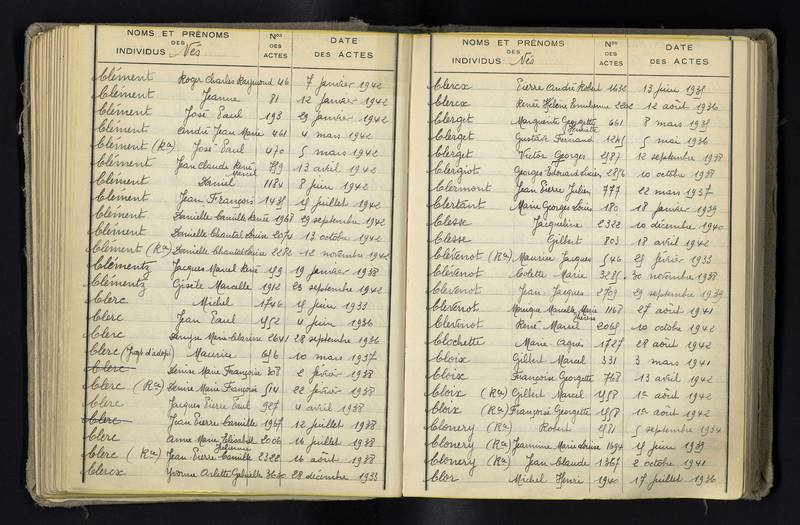 NOMS ET PRÉNOMS DES INDIVIDUS Nés | Nos DES ACTES | DATE DES ACTES
Clément Roger Charles Raymond 46 7 janvier 1942
Clément Jeanne 81 12 janvier 1942
Clément José Paul 193 29 janvier 1942
Clément André Jean Marie 461 4 mars 1942
Clément (Ra) José Paul 470 5 mars 1942
Clément Jean Claude René Marcel 13 avril 1942
Clément Daniel 1184 8 juin 1942
Clément Jean François juillet 1942
Clément Danielle Camille Renée 1968 29 septembre 1942
Clément Danielle Chantal Louise 2074 13 octobre 1942
Clément (Ra) Danielle Chantal Louise 12 novembre 1942
Clémentz Jacques Marcel René 19 janvier 1938
Clémentz Gisèle Marcelle 1912 23 septembre 1942
Clerc Michel 1746 juin 1933
Clerc Jean Paul 4 juin 1936
Clerc Marie Clarisse 2641 28 septembre 1936
Clerc (Jugt d'adopt) Maurice 10 mars 1937
Clerc Denise Marie Françoise 308 2 février 1938
Clerc (Ra) Denise Marie Françoise 514 22 février 1938
Clerc Jacques Pierre Paul 927 4 avril 1938
Clerc Jean Pierre Camille 1967 12 juillet 1938
Clerc Anne Marie Elisabeth 2006 16 juillet 1938
Clerc (Ra) Jean Pierre Camille 2322 16 août 1938
Clercx Yvonne Arlette Gabrielle 3630 28 décembre 1933
NOMS ET PRÉNOMS DES INDIVIDUS Nés | Nos DES ACTES | DATE DES ACTES
Clercx Pierre André Robert 1632 13 juin 1935
Clercx Renée Hélène Emilienne 2202 12 août 1936
Clerget Marguerite Georgette Henriette 661 8 mars 1935
Clerget Gustave Fernand 5 mai 1936
Clerget Victor Georges 12 septembre 1938
Clergiot Georges Edouard Lucien 10 octobre 1938
Clermont Jean Pierre Julien 777 22 mars 1937
Clertant Marie Georges Louis 180 18 janvier 1939
Clesse Jacqueline 2322 10 décembre 1940
Clesse Gilbert 803 18 avril 1942
Clévenot (Ra) Maurice Jacques 546 23 février 1933
Clevenot Colette Marie 30 novembre 1938
Clevenot Jean Jacques 2709 29 septembre 1939
Clevenot Monique Marcelle Marie Thérèse 1168 27 août 1941
Clevenot René Marcel 2068 10 octobre 1942
Clochette Marie Agnès 1727 28 août 1942
Cloix Gilbert Marcel 331 3 mars 1941
Cloix Françoise Georgette 768 13 avril 1942
Cloix (Ra) Gilbert Marcel août 1942
Cloix (Ra) Françoise Georgette août 1942
Clonery (Ra) Robert 5 septembre 1934
Clonery (Ra) Jeannine Marie Louise 1694 juin 1939
Clonery (Ra) Jean Claude 1367 2 octobre 1941
Clor Michel Henri 1940 17 juillet 1936